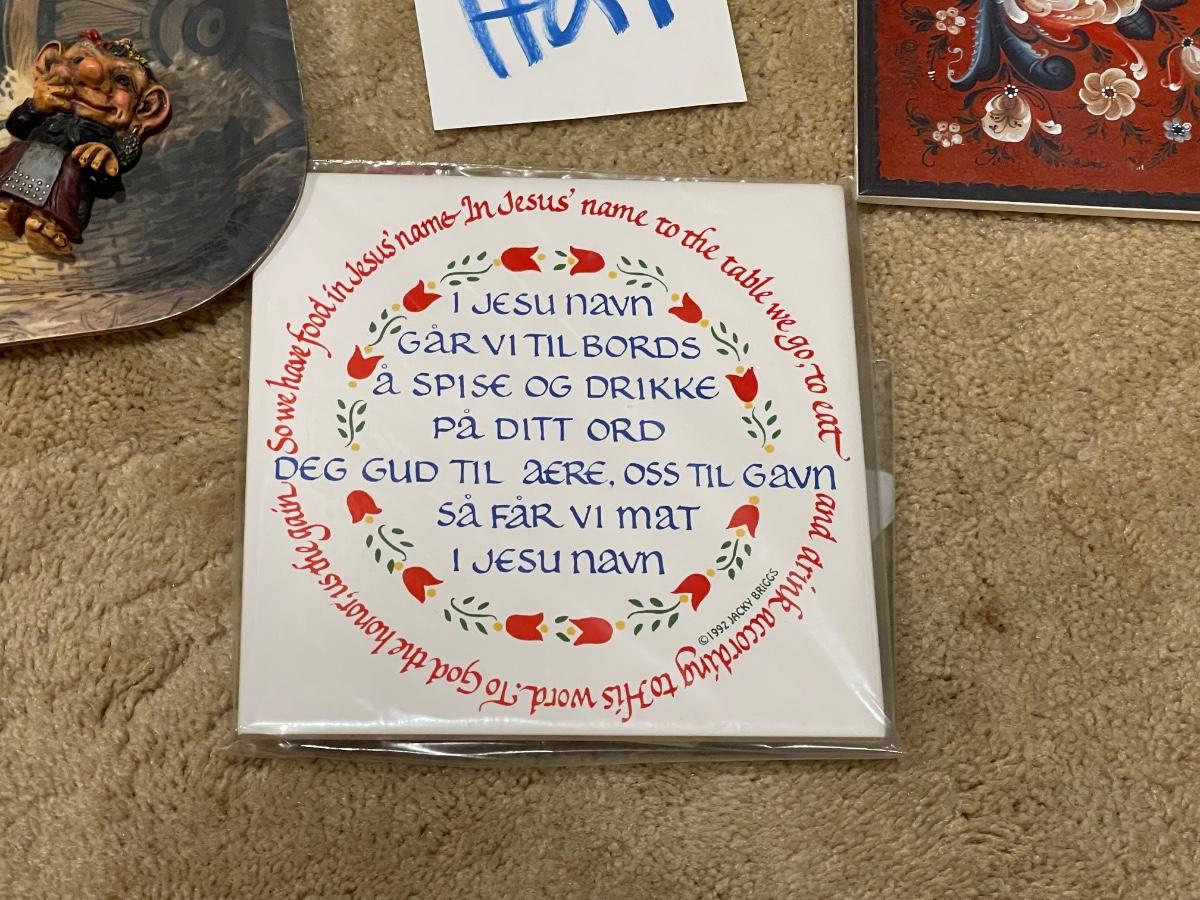 In Jesus' name to the table we go, to eat
and drink according to His word. To God the honor, us the gain
So we have food in Jesus' name
I JESU NAVN
GÅR VI TIL BORDS
Å SPISE OG DRIKKE
PÅ DITT ORD
DEG GUD TIL AERE, OSS TIL GAVN
SÅ FÅR VI MAT
I JESU NAVN
©1992 JACKY BRIGGS